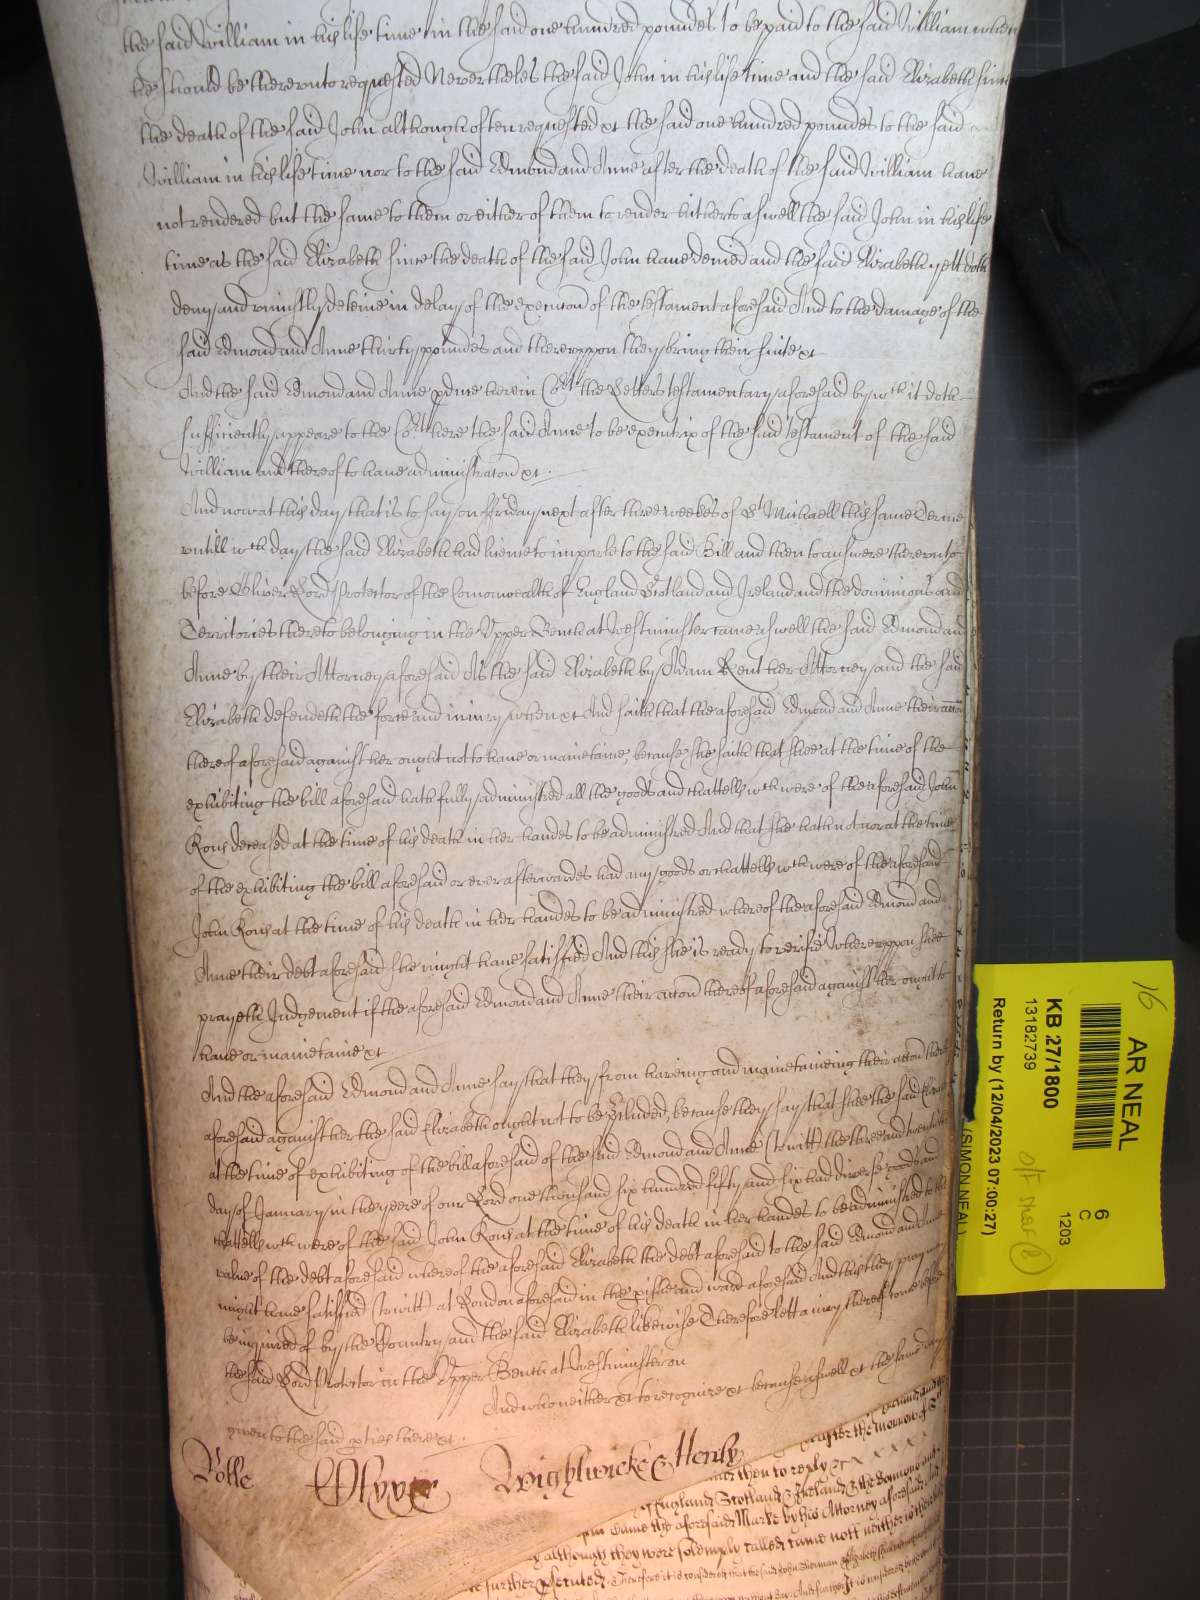 the said William in his life time in the said one hundred poundes to be paid to the said William when
he should be therevnto requested Neverthelesse the said John in his life time and the said Elizabeth since
the death of the said John although often requested &c the said one hundred poundes to the said
William in his life time nor to the said Edmond and Anne after the death of the said William haue
not rendered but the same to them or either of them to render hitherto aswell the said John in his life
time as the said Elizabeth since the death of the said John haue denied and the said Elizabeth yett doth
deny and uniustly deteine in delay of the execucon of the testament aforesaid And to the damage of the
said Edmond and Anne thirty poundes and therevppon they bring their suite &c
And the said Edmond and Anne pduce herein Cort the Letters testamentary aforesaid by wch it doth
sufficiently appeare to the Cort here the said Anne to be executrix of the said testament of the said
William and thereof to haue administracon &c
And now at this day that is to say on Friday next after three weekes of St Michaell this same Terme
vntill wch day the said Elizabeth had licence to imparle to the said Bill and then to answere therevnto
before Oliver Lord Protector of the Comonwealth of England Scotland and Ireland and the dominions and
Territories thereto belonging in the Upper Bench at Westminster came aswell the said Edmond and
Anne by their Attorney aforesaid As the said Elizabeth by Adam Kent her Attorney and the said
Elizabeth defendeth the force and iniury when &c And saith that the aforesaid Edmond and Anne their accon
thereof aforesaid against her ought not to haue or maintaine, because she saith that shee at the time of the
exhibiting the bill aforesaid hath fully administred all the goods and chattells wch were of the aforesaid John
deceased at the time of his death in her handes to be administred And that she hath not nor at the time
of the exhibiting the bill aforesaid or ever afterwardes had any goods or chattells wch were of the aforesaid
John at the time of his death in her handes to be administred whereof the aforesaid Edmond and
Anne their debt aforesaid she might haue satisfied And this she is ready to verifie Wherevppon shee
prayeth Judgement if the aforesaid Edmond and Anne their accon thereof aforesaid against her ought to
haue or maintaine &c
And the aforesaid Edmond and Anne say that they from haveing and maintaineing their accon thereof
aforesaid against her the said Elizabeth ought not to be because they say that shee the said Elizabeth
at the time of exhibiting of the bill aforesaid of the said Edmond and Anne (towitt) the three and twentieth
day of January in the yeere of our Lord one thousand six hundred fifty and six had diverse goods and
chattells wch were of the said John at the time of his death in her handes to be administred to the
value of the debt aforesaid whereof the aforesaid Elizabeth the debt aforesaid to the said Edmond and Anne
might haue satisfied (towitt) at London aforesaid in the pishe and ward aforesaid And this they pray may
be inquired of by the Country and the said Elizabeth likewise Therefore lett a iury thereof come before
the said Lord Protector in the Upper Bench at Westminster on
And who neither &c to recognize &c because aswell &c the same day
given to the said pties there &c
Rolle
Wightwicke & Henly
after the morrow of
then to reply
of England Scotland & Ireland & the dominions and
came the aforesaid Marke by his Attorney aforesaid
although they were solemply called came nott neither
further
AR NEAL
KB 27/1800
13182739
Return by (12/04/2023 07:00:27)
6
C
1203
(SIMON NEAL)
16